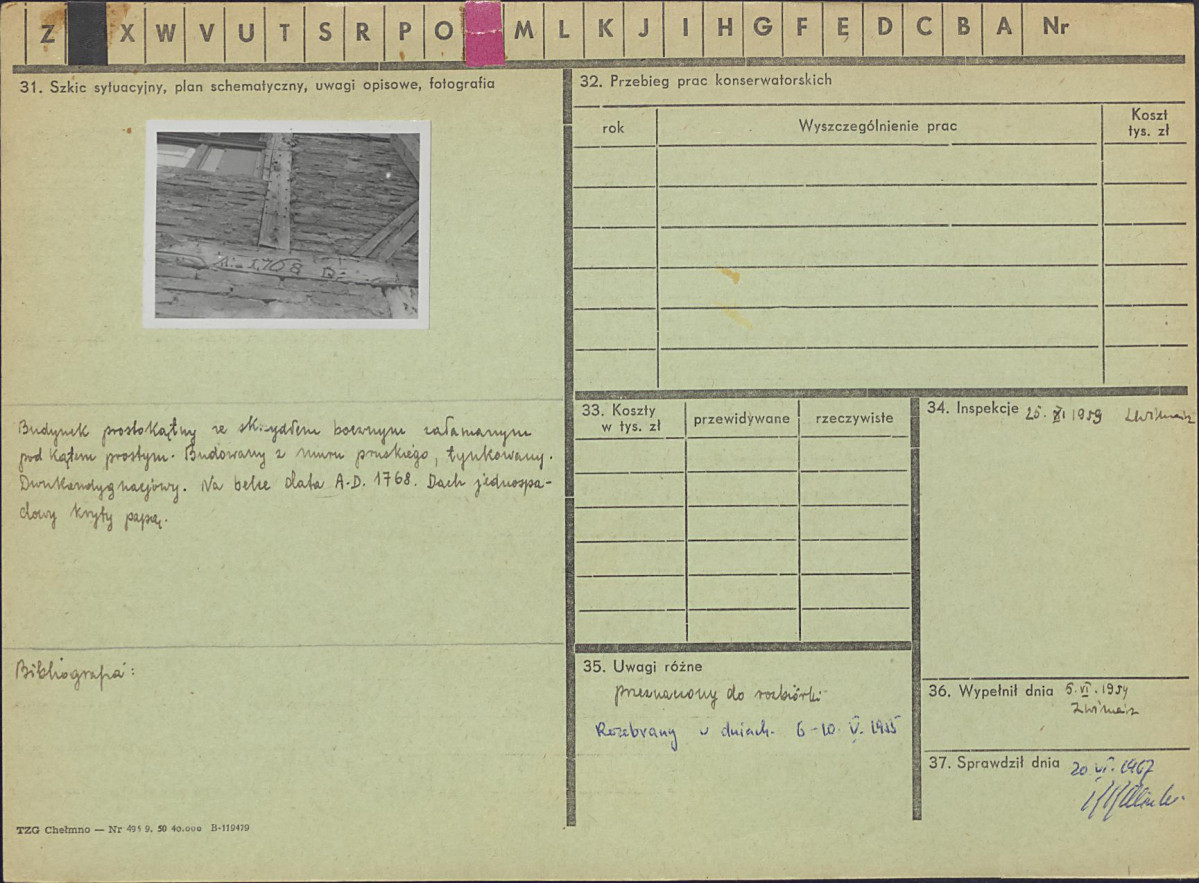 Z X W V U T S R P O M L K J I H G F E D C B A Nr
31. Szkic sytuacyjny, plan schematyczny, uwagi opisowe, fotografia
1768
Budynek prostokątny ze skrzydłem bocznym załamanym
pod kątem prostym. Budowany z muru pruskiego, tynkowany.
Dwukondygnacjowy. Na belce data A.D. 1768. Dach jednospa-
dowy kryty papą.
Bibliografia:
TZG Chełmno — Nr 491 9. 50 40.000 B-119479
32. Przebieg prac konserwatorskich
rok Wyszczególnienie prac Koszt
tys. zł
33. Koszty
w tys. zł przewidywane rzeczywiste
34. Inspekcje XI 1959
35. Uwagi różne
przeznaczony do rozbiórki
Rozebrany w dniach 6-10 V. 1955
36. Wypełnił dnia 6.VI.1959
37. Sprawdził dnia 20 VI. 1967